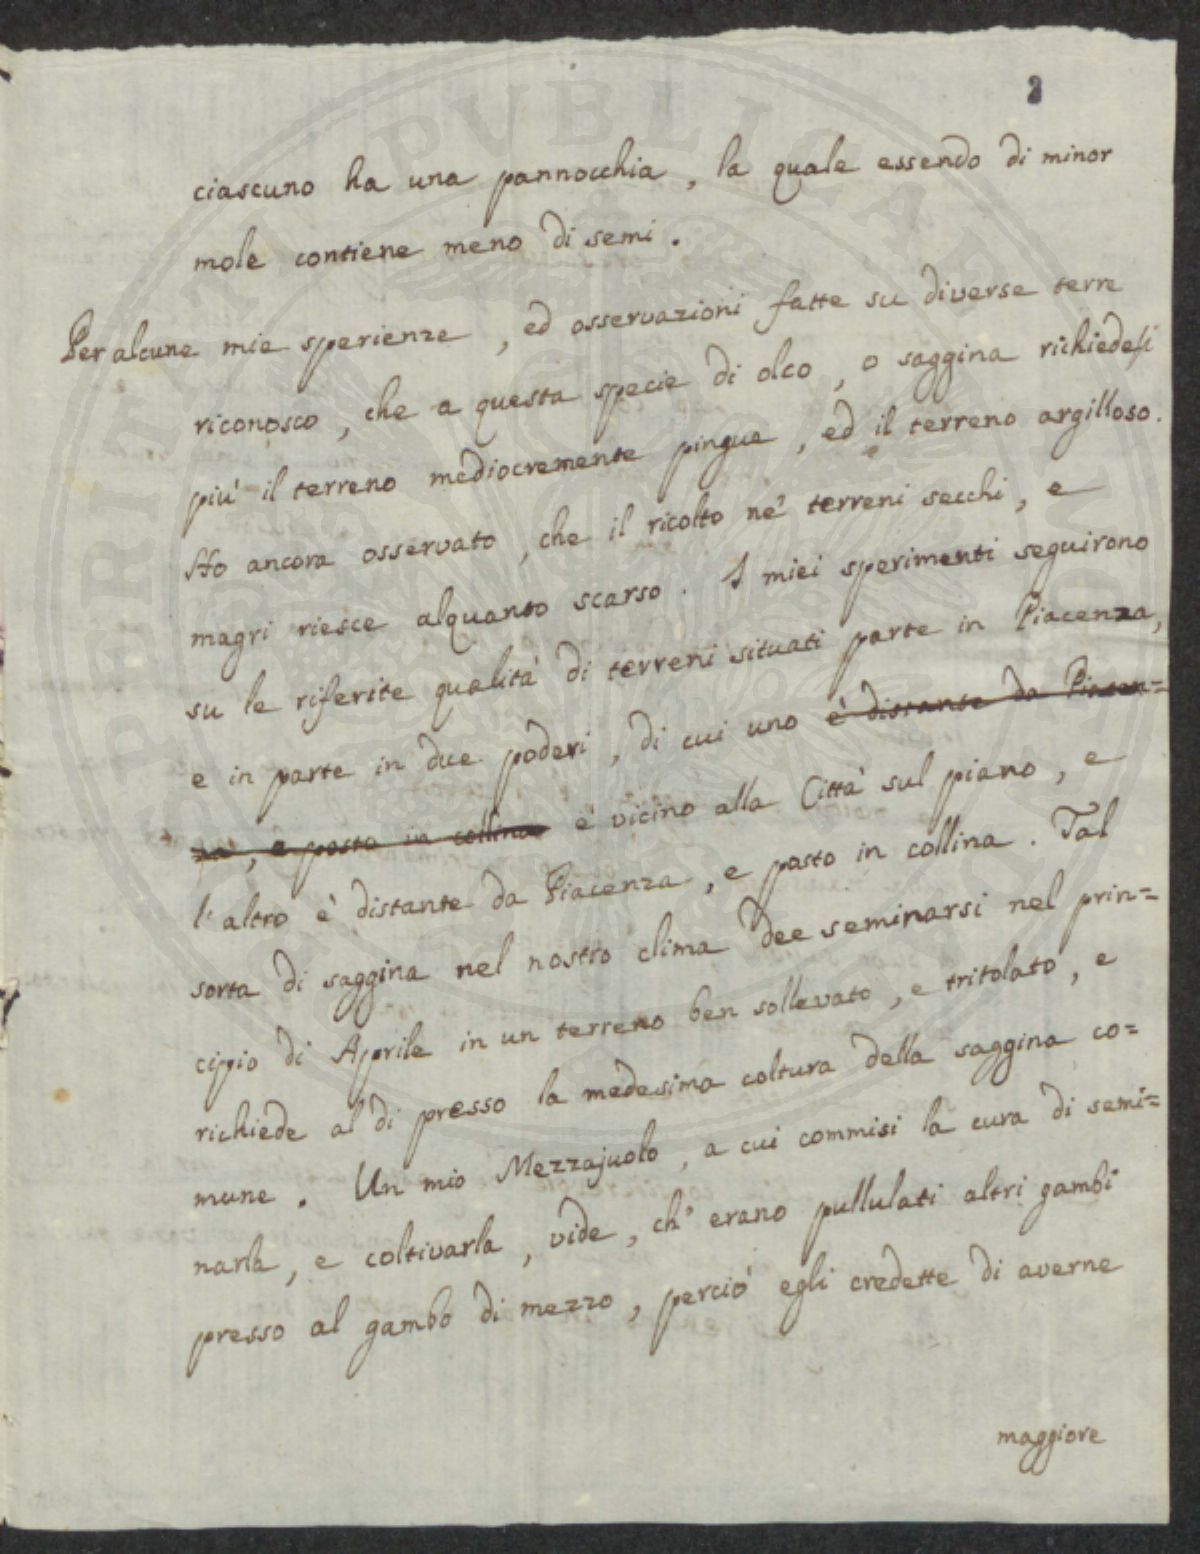 2
ciascuno ha una pannocchia, la quale essendo di minor
mole contiene meno di semi.
Per alcune mie sperienze, ed osservazioni fatte su diverse terre
riconosco, che a questa specie di olco, o saggina richiedesi
più il terreno mediocremente pingue, ed il terreno argilloso.
Ho ancora osservato, che il ricolto ne' terreni secchi, e
magri riesce alquanto scarso. I miei sperimenti seguirono
su le riferite qualità di terreni situati parte in Piacenza,
e in parte in due poderi, di cui uno è distante da Piacen=
za, e posto in collina è vicino alla Città sul piano, e
l'altro è distante da Piacenza, e posto in collina. Tal
sorta di saggina nel nostro clima dee seminarsi nel prin=
cipio di Aprile in un terreno ben sollevato, e tritolato, e
richiede al di presso la medesima coltura della saggina co=
mune. Un mio Mezzajuolo, a cui commisi la cura di semi=
narla, e coltivarla, vide, ch'erano pullulati altri gambi
presso al gambo di mezzo, perciò egli credette di averne
maggiore